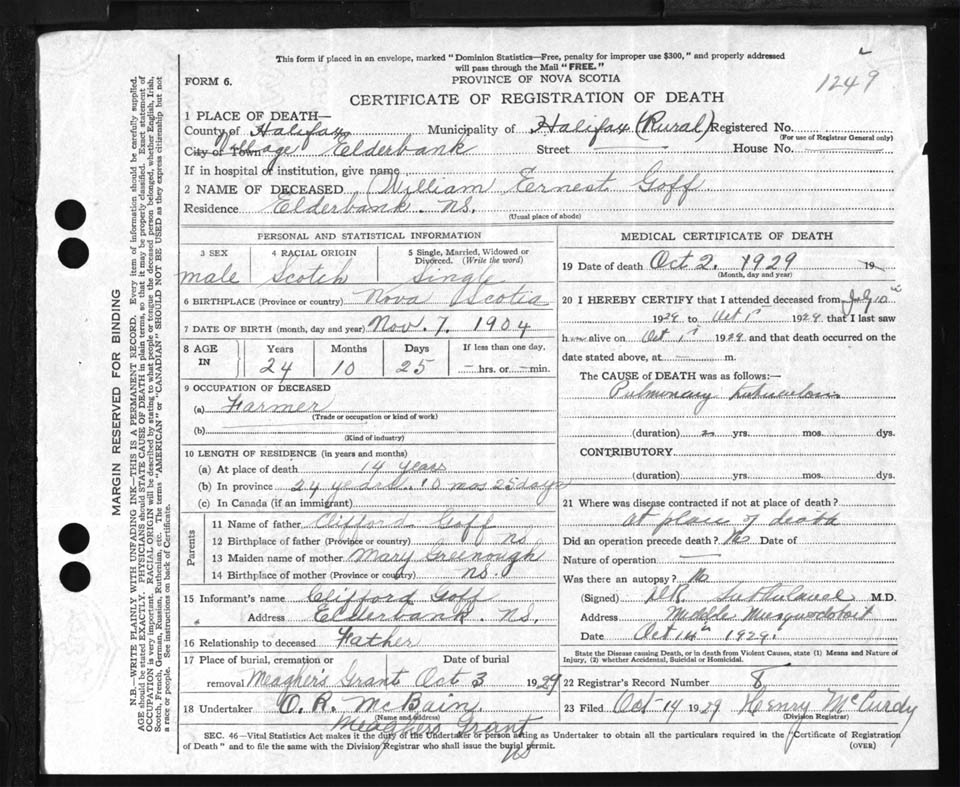 This form if placed in an envelope, marked "Dominion Statistics—Free, penalty for improper use $300," and properly addressed
will pass through the Mail "FREE."
1249
FORM 6.
PROVINCE OF NOVA SCOTIA
CERTIFICATE OF REGISTRATION OF DEATH
1 PLACE OF DEATH—
County of Halifax Municipality of Halifax (Rural) Registered No.
(For use of Registrar General only)
City or Town Village Elderbank Street House No.
If in hospital or institution, give name
2 NAME OF DECEASED William Ernest Goff
Residence Elderbank. NS.
(Usual place of abode)
PERSONAL AND STATISTICAL INFORMATION
3 SEX 4 RACIAL ORIGIN 5 Single, Married, Widowed or Divorced. (Write the word)
male Scotch Single
6 BIRTHPLACE (Province or country) Nova Scotia
7 DATE OF BIRTH (month, day and year) Nov. 7. 1904
8 AGE IN Years Months Days If less than one day.
24 10 25 — hrs. or — min.
9 OCCUPATION OF DECEASED
(a) Farmer
(Trade or occupation or kind of work)
(b)
(Kind of industry)
10 LENGTH OF RESIDENCE (in years and months)
(a) At place of death 14 years
(b) In province 24 years 10 mos 25 days
(c) In Canada (if an immigrant)
Parents
11 Name of father Clifford Goff
12 Birthplace of father (Province or country) NS
13 Maiden name of mother Mary Greenough
14 Birthplace of mother (Province or country) NS.
15 Informant's name Clifford Goff
Address Elderbank. NS.
16 Relationship to deceased Father
17 Place of burial, cremation or removal Date of burial
Meaghers Grant Oct 3 1929
18 Undertaker O. R. McBain
(Name and address)
Meaghers Grant
NS
MEDICAL CERTIFICATE OF DEATH
19 Date of death Oct 2. 1929 19
(Month, day and year)
20 I HEREBY CERTIFY that I attended deceased from July 10th
1929 to Oct 1st 1929 that I last saw
h alive on Oct 1st 1929 and that death occurred on the
date stated above, at — m.
The CAUSE OF DEATH was as follows:—
Pulmonary tuberculosis
(duration) 2 yrs. mos. dys.
CONTRIBUTORY
(duration) yrs. mos. dys.
21 Where was disease contracted if not at place of death?
at place of death
Did an operation precede death? No Date of
Nature of operation —
Was there an autopsy? No
(Signed) M.D.
Address Middle Musquodoboit
Date Oct 14th 1929.
State the Disease causing Death, or in death from Violent Causes, state (1) Means and Nature of
Injury, (2) whether Accidental, Suicidal or Homicidal.
22 Registrar's Record Number 8
23 Filed Oct 14 1929 Henry McCurdy
(Division Registrar)
SEC. 46—Vital Statistics Act makes it the duty of the Undertaker or person acting as Undertaker to obtain all the particulars required in the "Certificate of Registration
of Death" and to file the same with the Division Registrar who shall issue the burial permit.
(OVER)
MARGIN RESERVED FOR BINDING
N.B.—WRITE PLAINLY WITH UNFADING INK—THIS IS A PERMANENT RECORD. Every item of information should be carefully supplied.
AGE should be stated EXACTLY. PHYSICIANS should STATE CAUSE OF DEATH in plain terms, so that it may be properly classified. Exact statement of
OCCUPATION is very important. RACIAL ORIGIN will be described by stating to what people or tongue the deceased person belonged, whether English, Irish,
Scotch, French, German, Russian, Ruthenian, etc. The terms "AMERICAN" or "CANADIAN" SHOULD NOT BE USED as they express citizenship but not
a race or people. See instructions on back of Certificate.